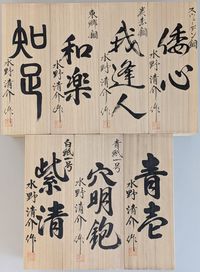 スウェーデン鋼
倭心
水野清介作
炭素鋼
我逢人
水野清介作
東郷鋼
和楽
水野清介作
知足
水野清介作
青壱
水野清介作
青紙一号
穴明鉋
水野清介作
白紙一号
紫清
水野清介作